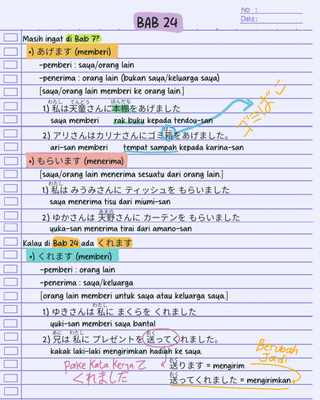 NO :
Date:
BAB 24
Masih ingat di Bab 7?
•) あげます (memberi)
-pemberi : saya/orang lain
-penerima : orang lain (bukan saya/keluarga saya)
[saya/orang lain memberi ke orang lain.]
わたし てんどう ほんだな
1) 私は天童さんに本棚をあげました
saya memberi rak buku kepada tendou-san
2) アリさんはカリナさんにゴミ箱をあげました。
ari-san memberi tempat sampah kepada karina-san
ゴミばこ
•) もらいます (menerima)
[saya/orang lain menerima sesuatu dari orang lain.]
わたし
1) 私は みうみさんに ティッシュを もらいました
saya menerima tisu dari miumi-san
2) ゆかさんは 天野さんに カーテンを もらいました
yuka-san menerima tirai dari amano-san
Kalau di Bab 24 ada くれます
•) くれます (memberi)
-pemberi : orang lain
-penerima : saya/keluarga
[orang lain memberi untuk saya atau keluarga saya.]
わたし
1) ゆきさんは 私に まくらを くれました
yuki-san memberi saya bantal
あに わたし おく
2) 兄は 私に プレゼントを 送ってくれました。
kakak laki-laki mengirimkan hadiah ke saya.
Pake Kata Kerja て
くれました
Berubah
Jadi
おく
送ります = mengirim
おく
送ってくれました = mengirimkan